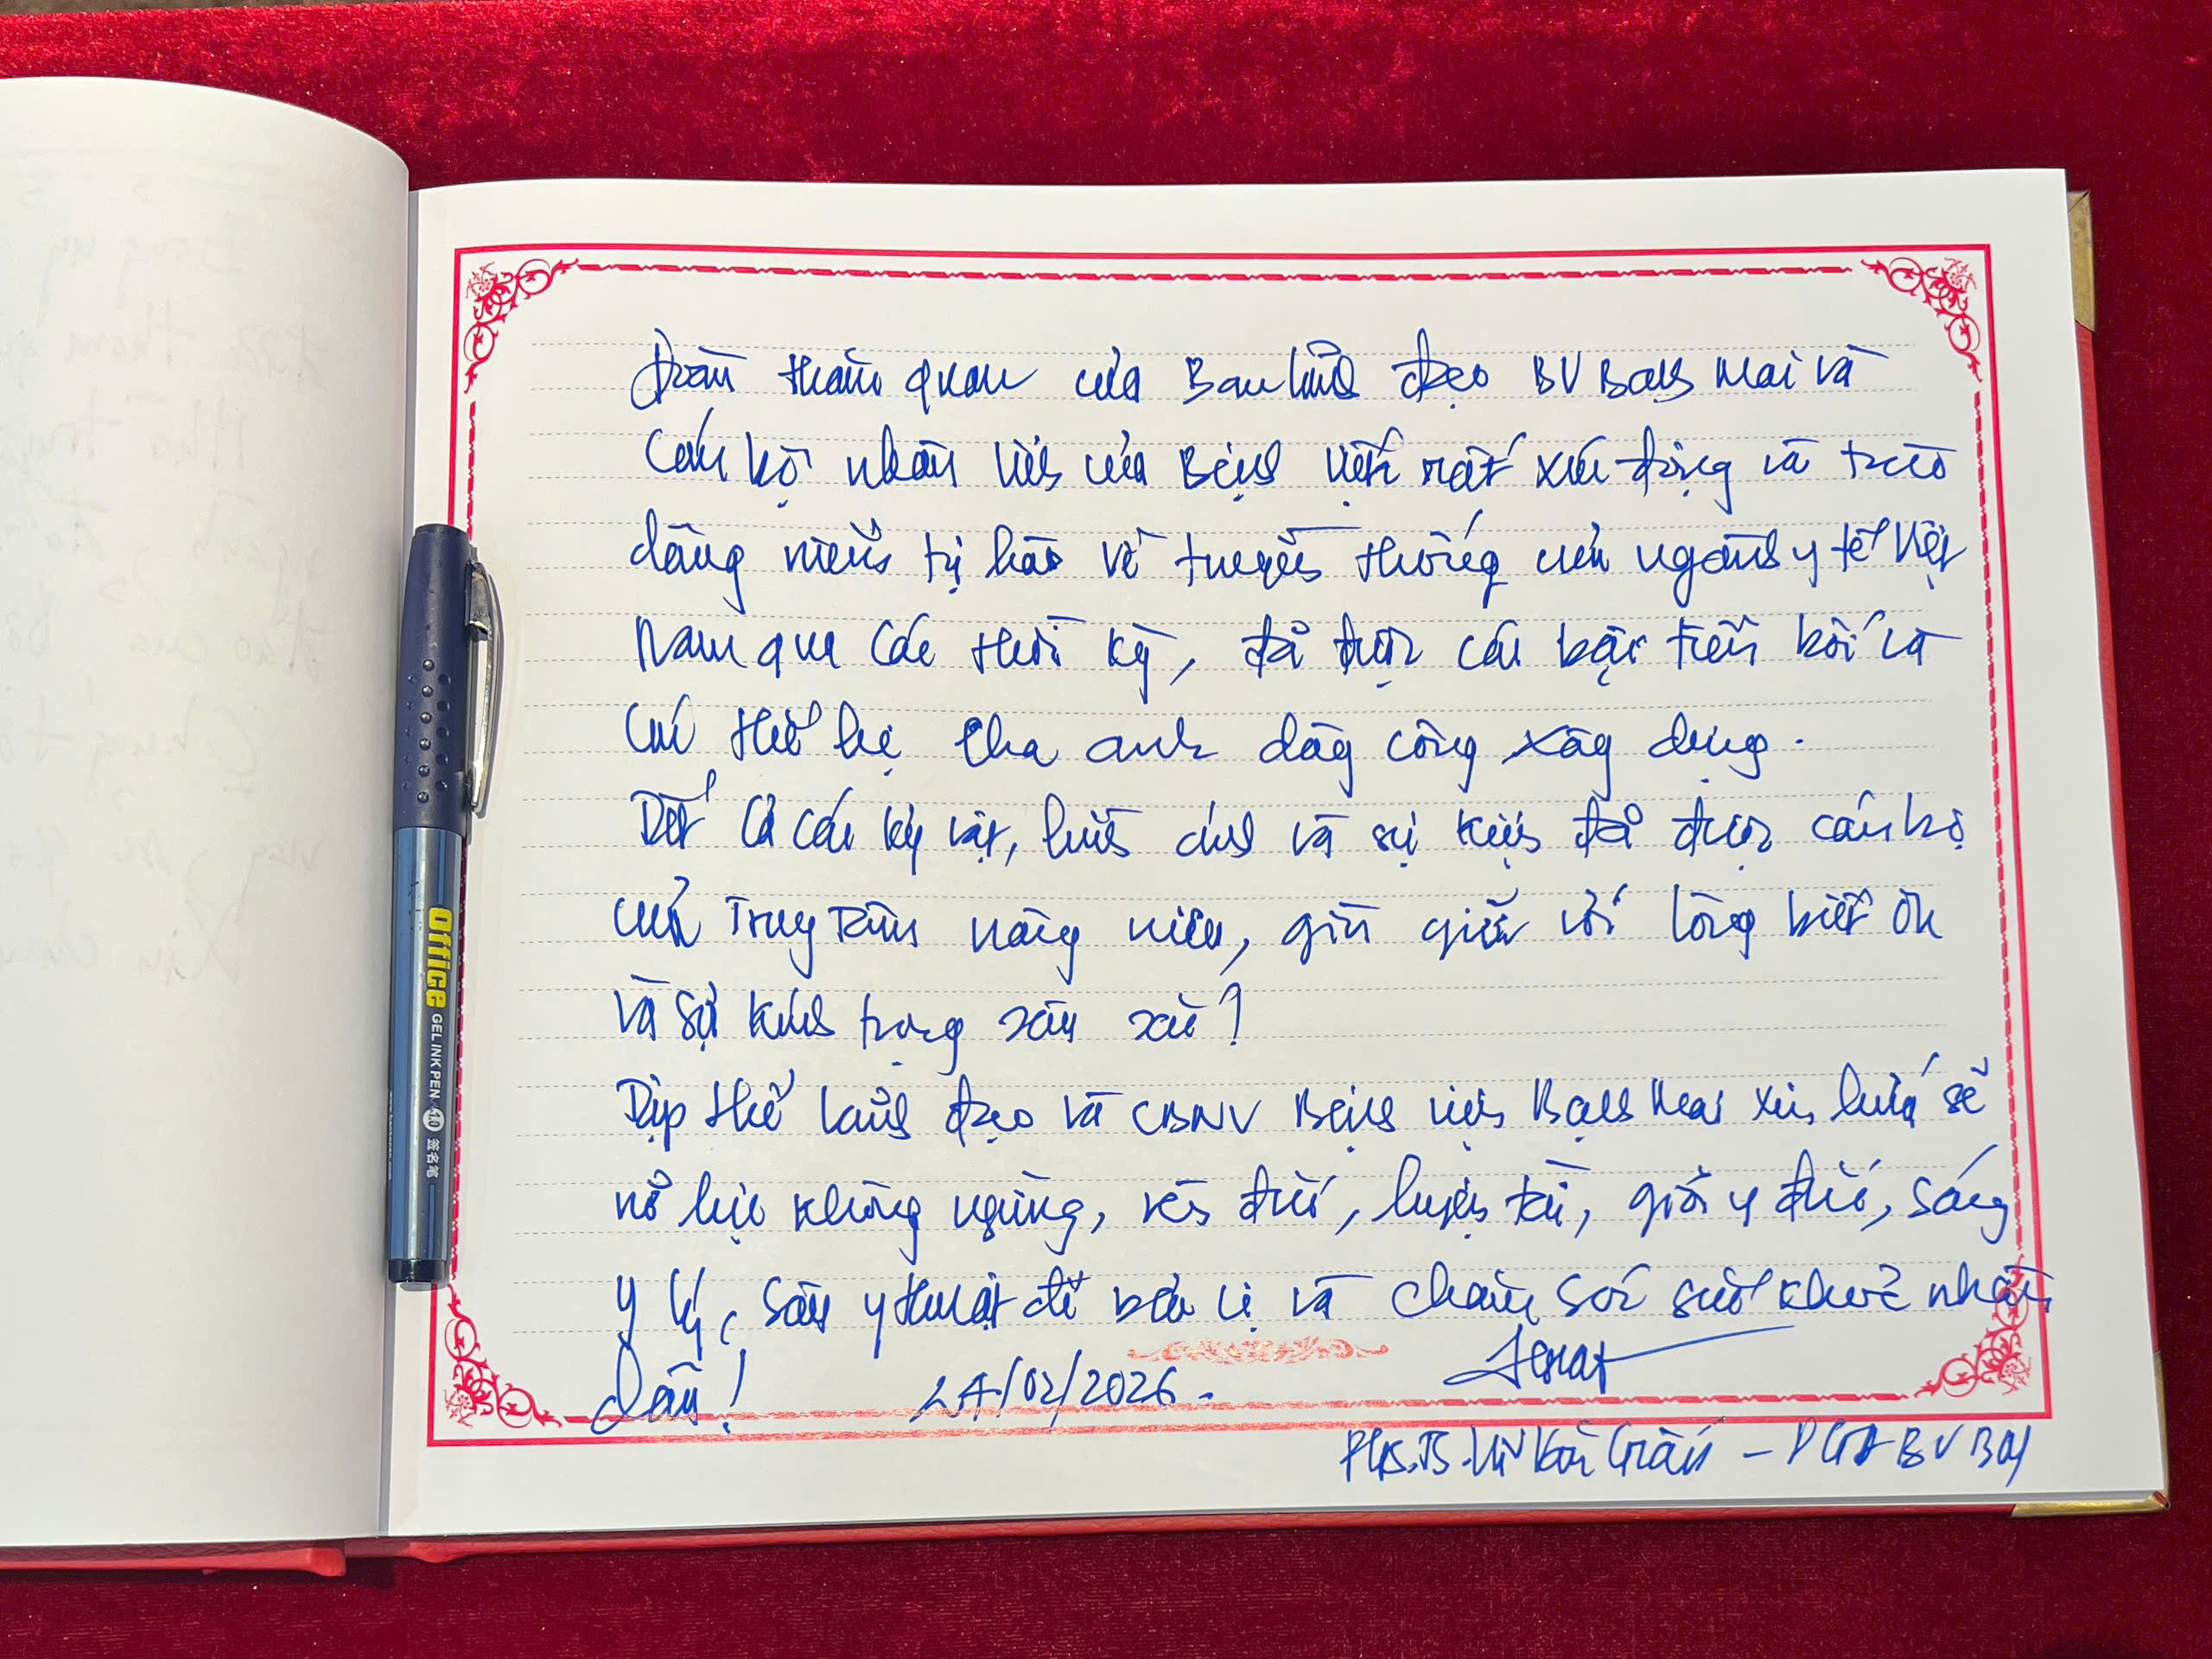 Đoàn tham quan của Ban lãnh đạo BV Bạch Mai và
cán bộ nhân viên của Bệnh viện rất xúc động và trào
dâng niềm tự hào về truyền thống của ngành y tế Việt
Nam qua các thời kỳ, đã được các bậc tiền bối và
các thế hệ cha anh dày công xây dựng.
Tất cả các kỷ vật, hình ảnh và sự kiện đã được cán bộ
của Trung tâm nâng niu, gìn giữ với lòng biết ơn
và sự kính trọng sâu sắc!
Tập thể lãnh đạo và CBNV Bệnh viện Bạch Mai xin hứa sẽ
nỗ lực không ngừng, rèn đức, luyện tài, giỏi y đức, sáng
y lý, sâu y thuật để bảo vệ và chăm sóc sức khoẻ nhân
dân!
24/02/2026.
PGS.TS. Giáp - PGĐ BV BM
Office
GEL INK PEN 1.0 签名笔